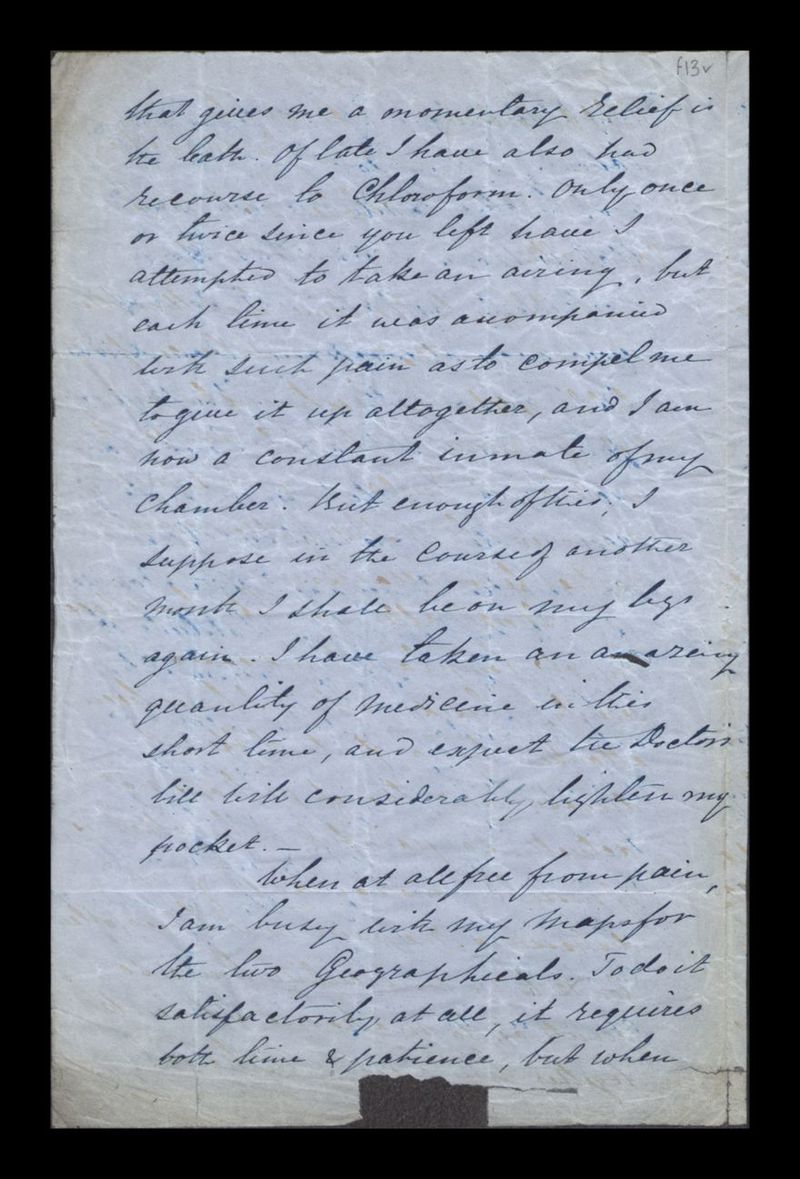 f13v
that gives me a momentary relief is
the bath. Of late I have also had
recourse to Chloroform. Only once
or twice since you left have I
attempted to take an airing, but
each time it was accompanied
with such pain as to compel me
to give it up altogether, and I am
now a constant inmate of my
Chamber. But enough of this, I
suppose in the course of another
month I shall be on my legs
again. I have taken an amazing
quantity of medicine in this
short time, and expect the Doctors
bill will considerably lighten my
pocket. —
When at all free from pain,
I am busy with my Maps for
the two Geographicals. To do it
satisfactorily at all, it requires
both time & patience, but when